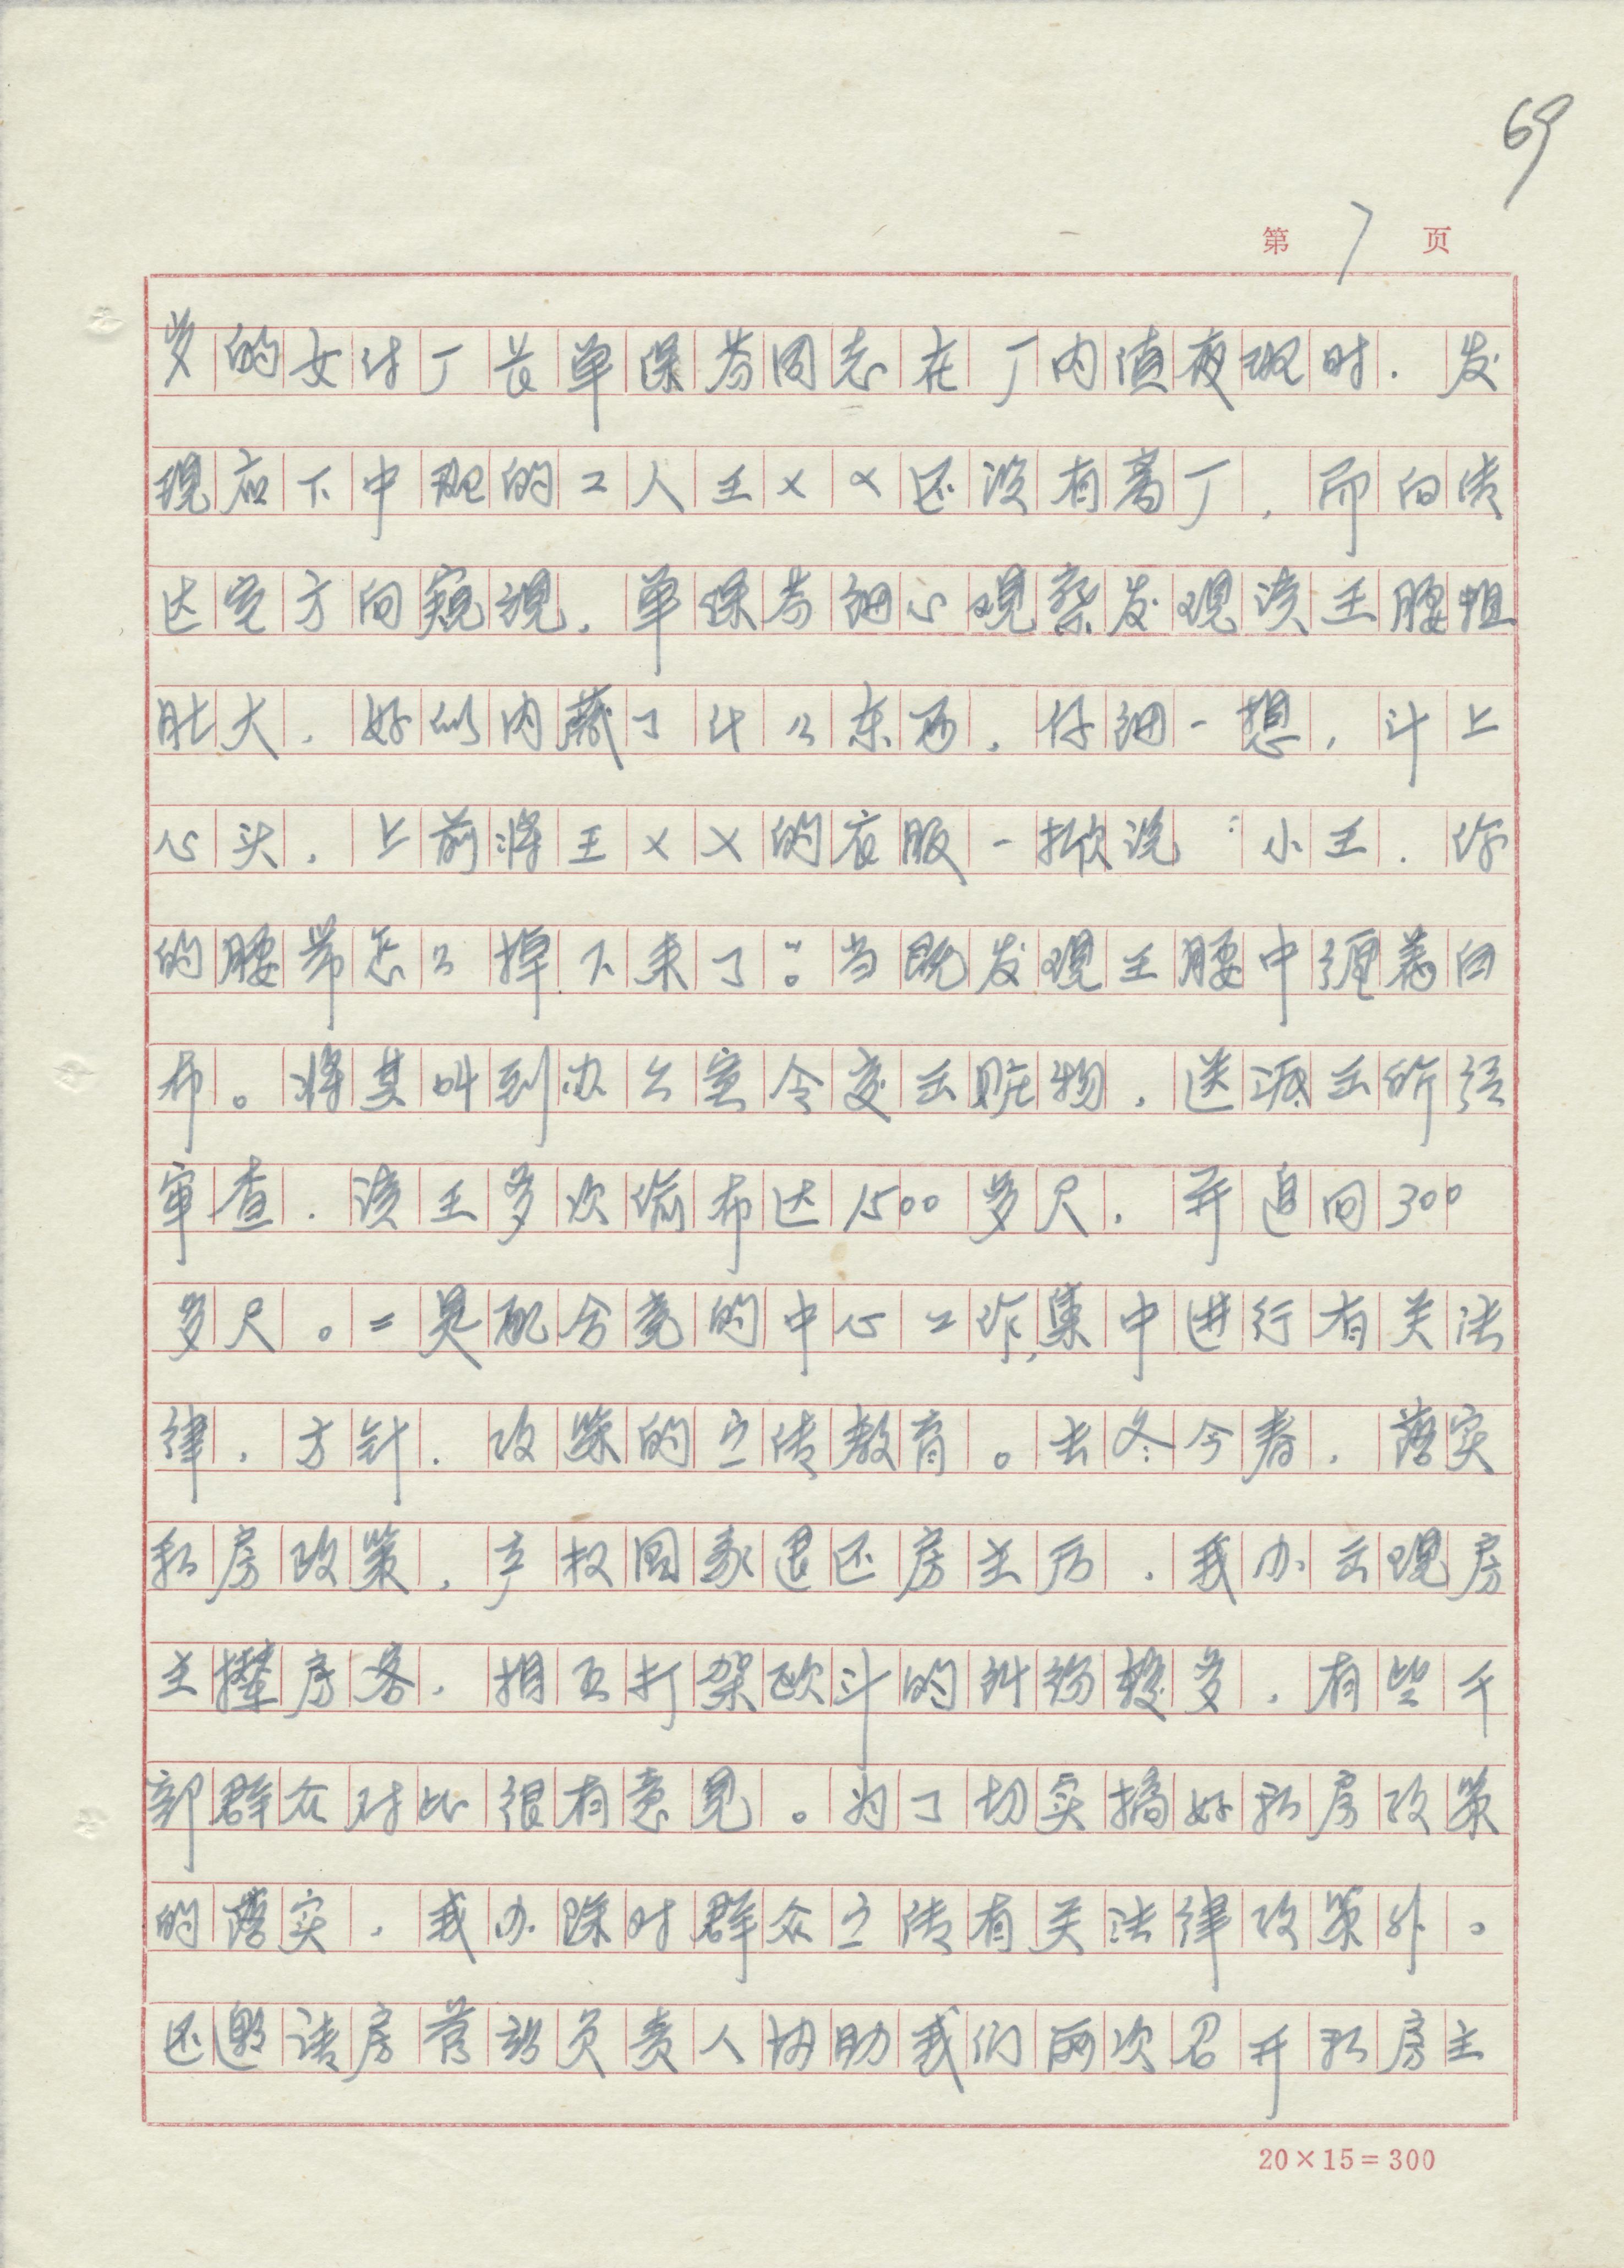 69
第 7 页
岁的女付厂长单保芳同志在厂内值夜班时. 发
现应下中班的工人王××还没有离厂, 而向传
达室方向窥视, 单保芳细心观察发现该王腰粗
肚大, 好似内藏了什么东西, 仔细一想, 斗上
心头, 上前将王××的衣服一掀说“小王. 你
的腰带怎么掉下来了”。当既发现王腰中缠着白
布。将其叫到办公室令交出赃物, 送派出所经
审查. 该王多次偷布达1500多尺, 并追回300
多尺。二是配合党的中心工作,集中进行有关法
律, 方针. 政策的宣传教育。去冬今春, 落实
私房政策, 产权国家退还房主后, 我办出现房
主撵房客, 相互打架欧斗的纠纷较多, 有些干
部群众对此很有意见。为了切实搞好私房政策
的落实, 我办除对群众宣传有关法律政策外。
还邀请房管部负责人协助我们两次召开私房主
20×15=300